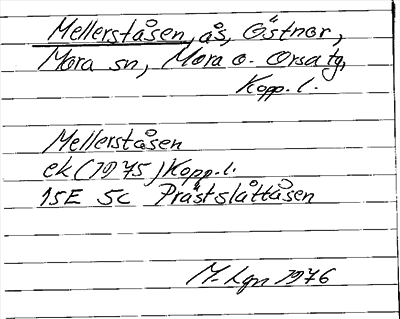 Mellerståsen, ås, Östnor,
Mora sn, Mora o. Orsa tg,
Kopp. l.
Mellerståsen
ek (1975) Kopp. l.
15E 5c Prästslåttåsen
M-Lgn 1976